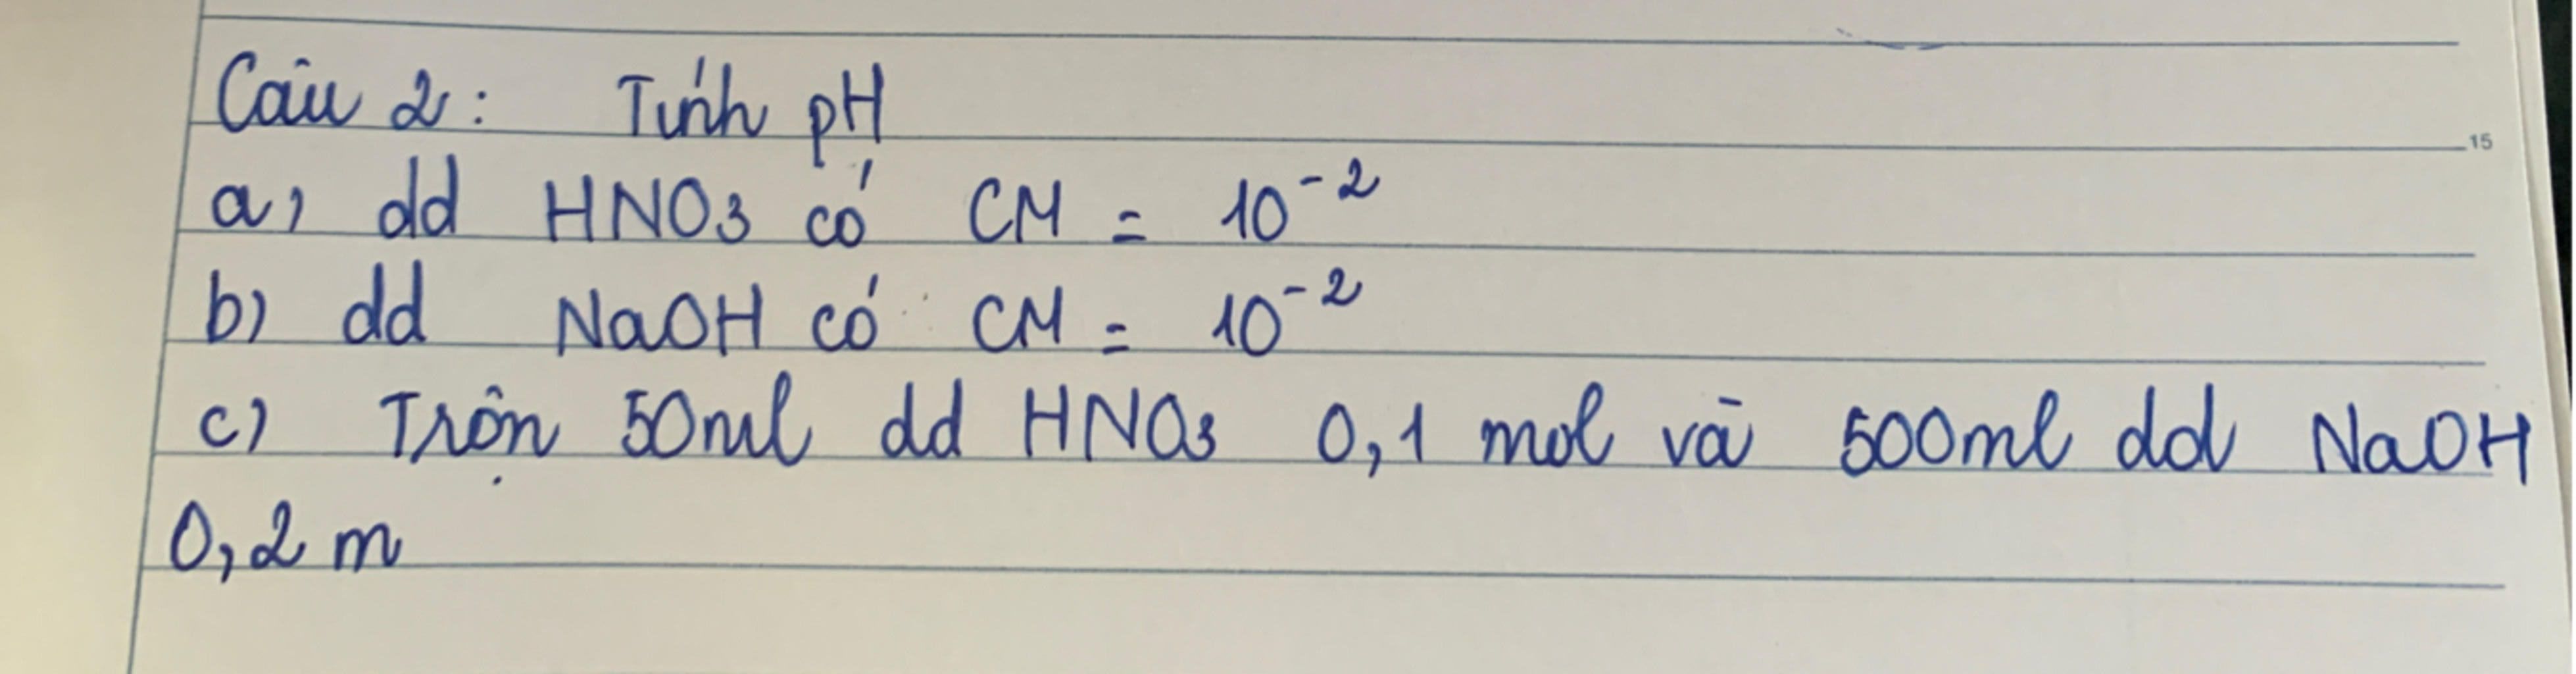 Câu 2: Tính pH
15
a) dd HNO3 có CM = 10⁻²
b) dd NaOH có CM = 10⁻²
c) Trộn 50ml dd HNO3 0,1 mol và 500ml dd NaOH
0,2 m